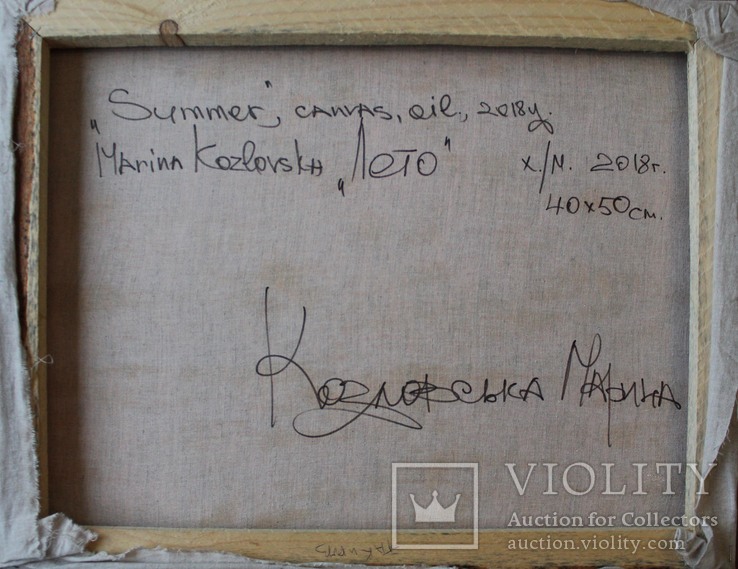 „Summer", canvas, oil, 2018y.
Marina Kozlovska „Лето" х./м. 2018г.
40x50см.
Козловська Марина
VIOLITY
Auction for Collectors
auction.violity.com